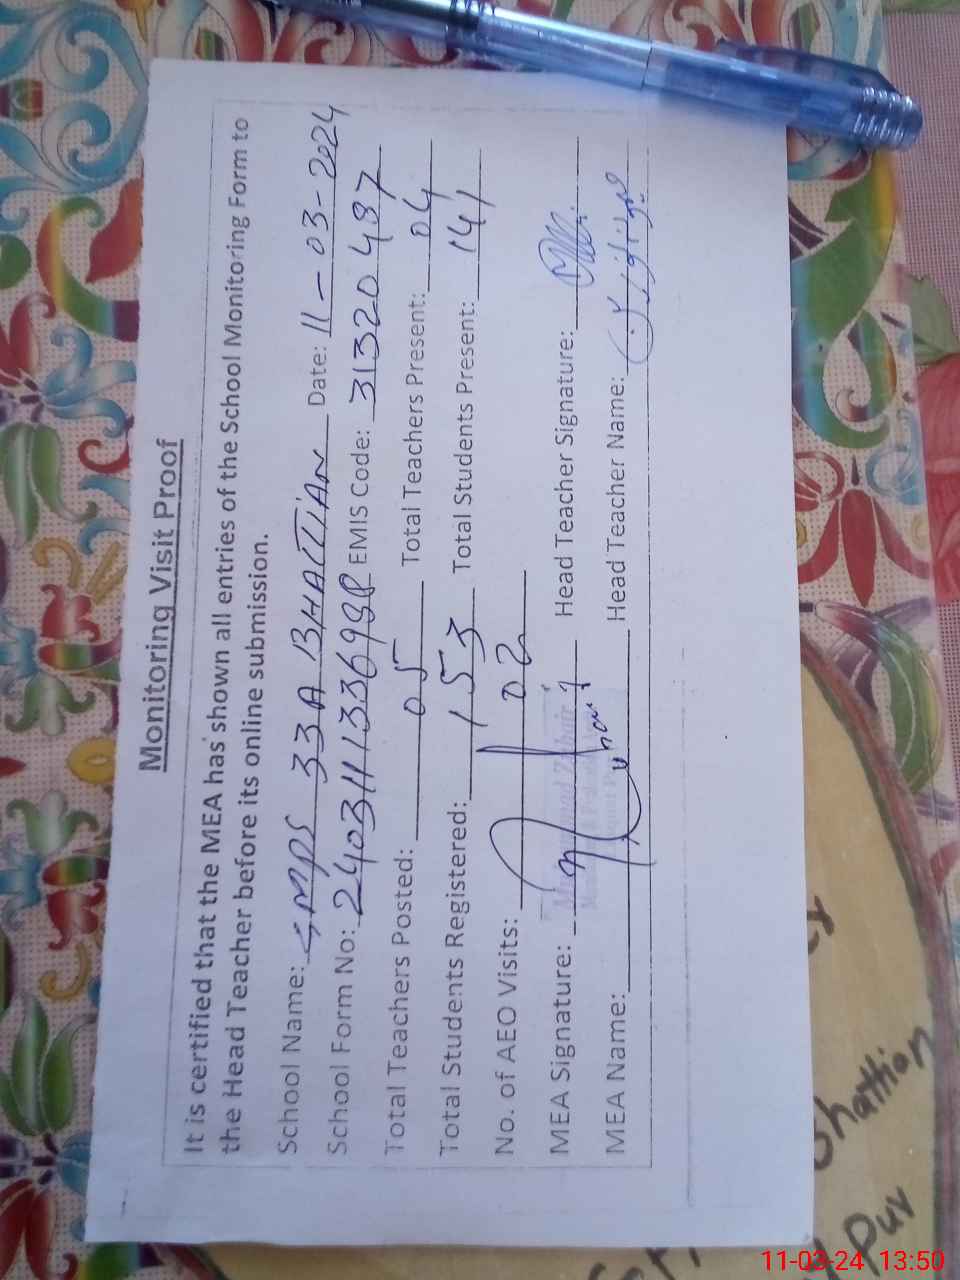 Monitoring Visit Proof
It is certified that the MEA has shown all entries of the School Monitoring Form to
the Head Teacher before its online submission.
School Name: GMPS 33A BHATTIAN Date: 11-03-2024
School Form No: EMIS Code: 31320487
Total Teachers Posted: 05 Total Teachers Present: 04
Total Students Registered: 153 Total Students Present: 141
No. of AEO Visits: 02
MEA Signature: Head Teacher Signature:
MEA Name: Head Teacher Name:
Bhattion
Pur
11-03-24 13:50